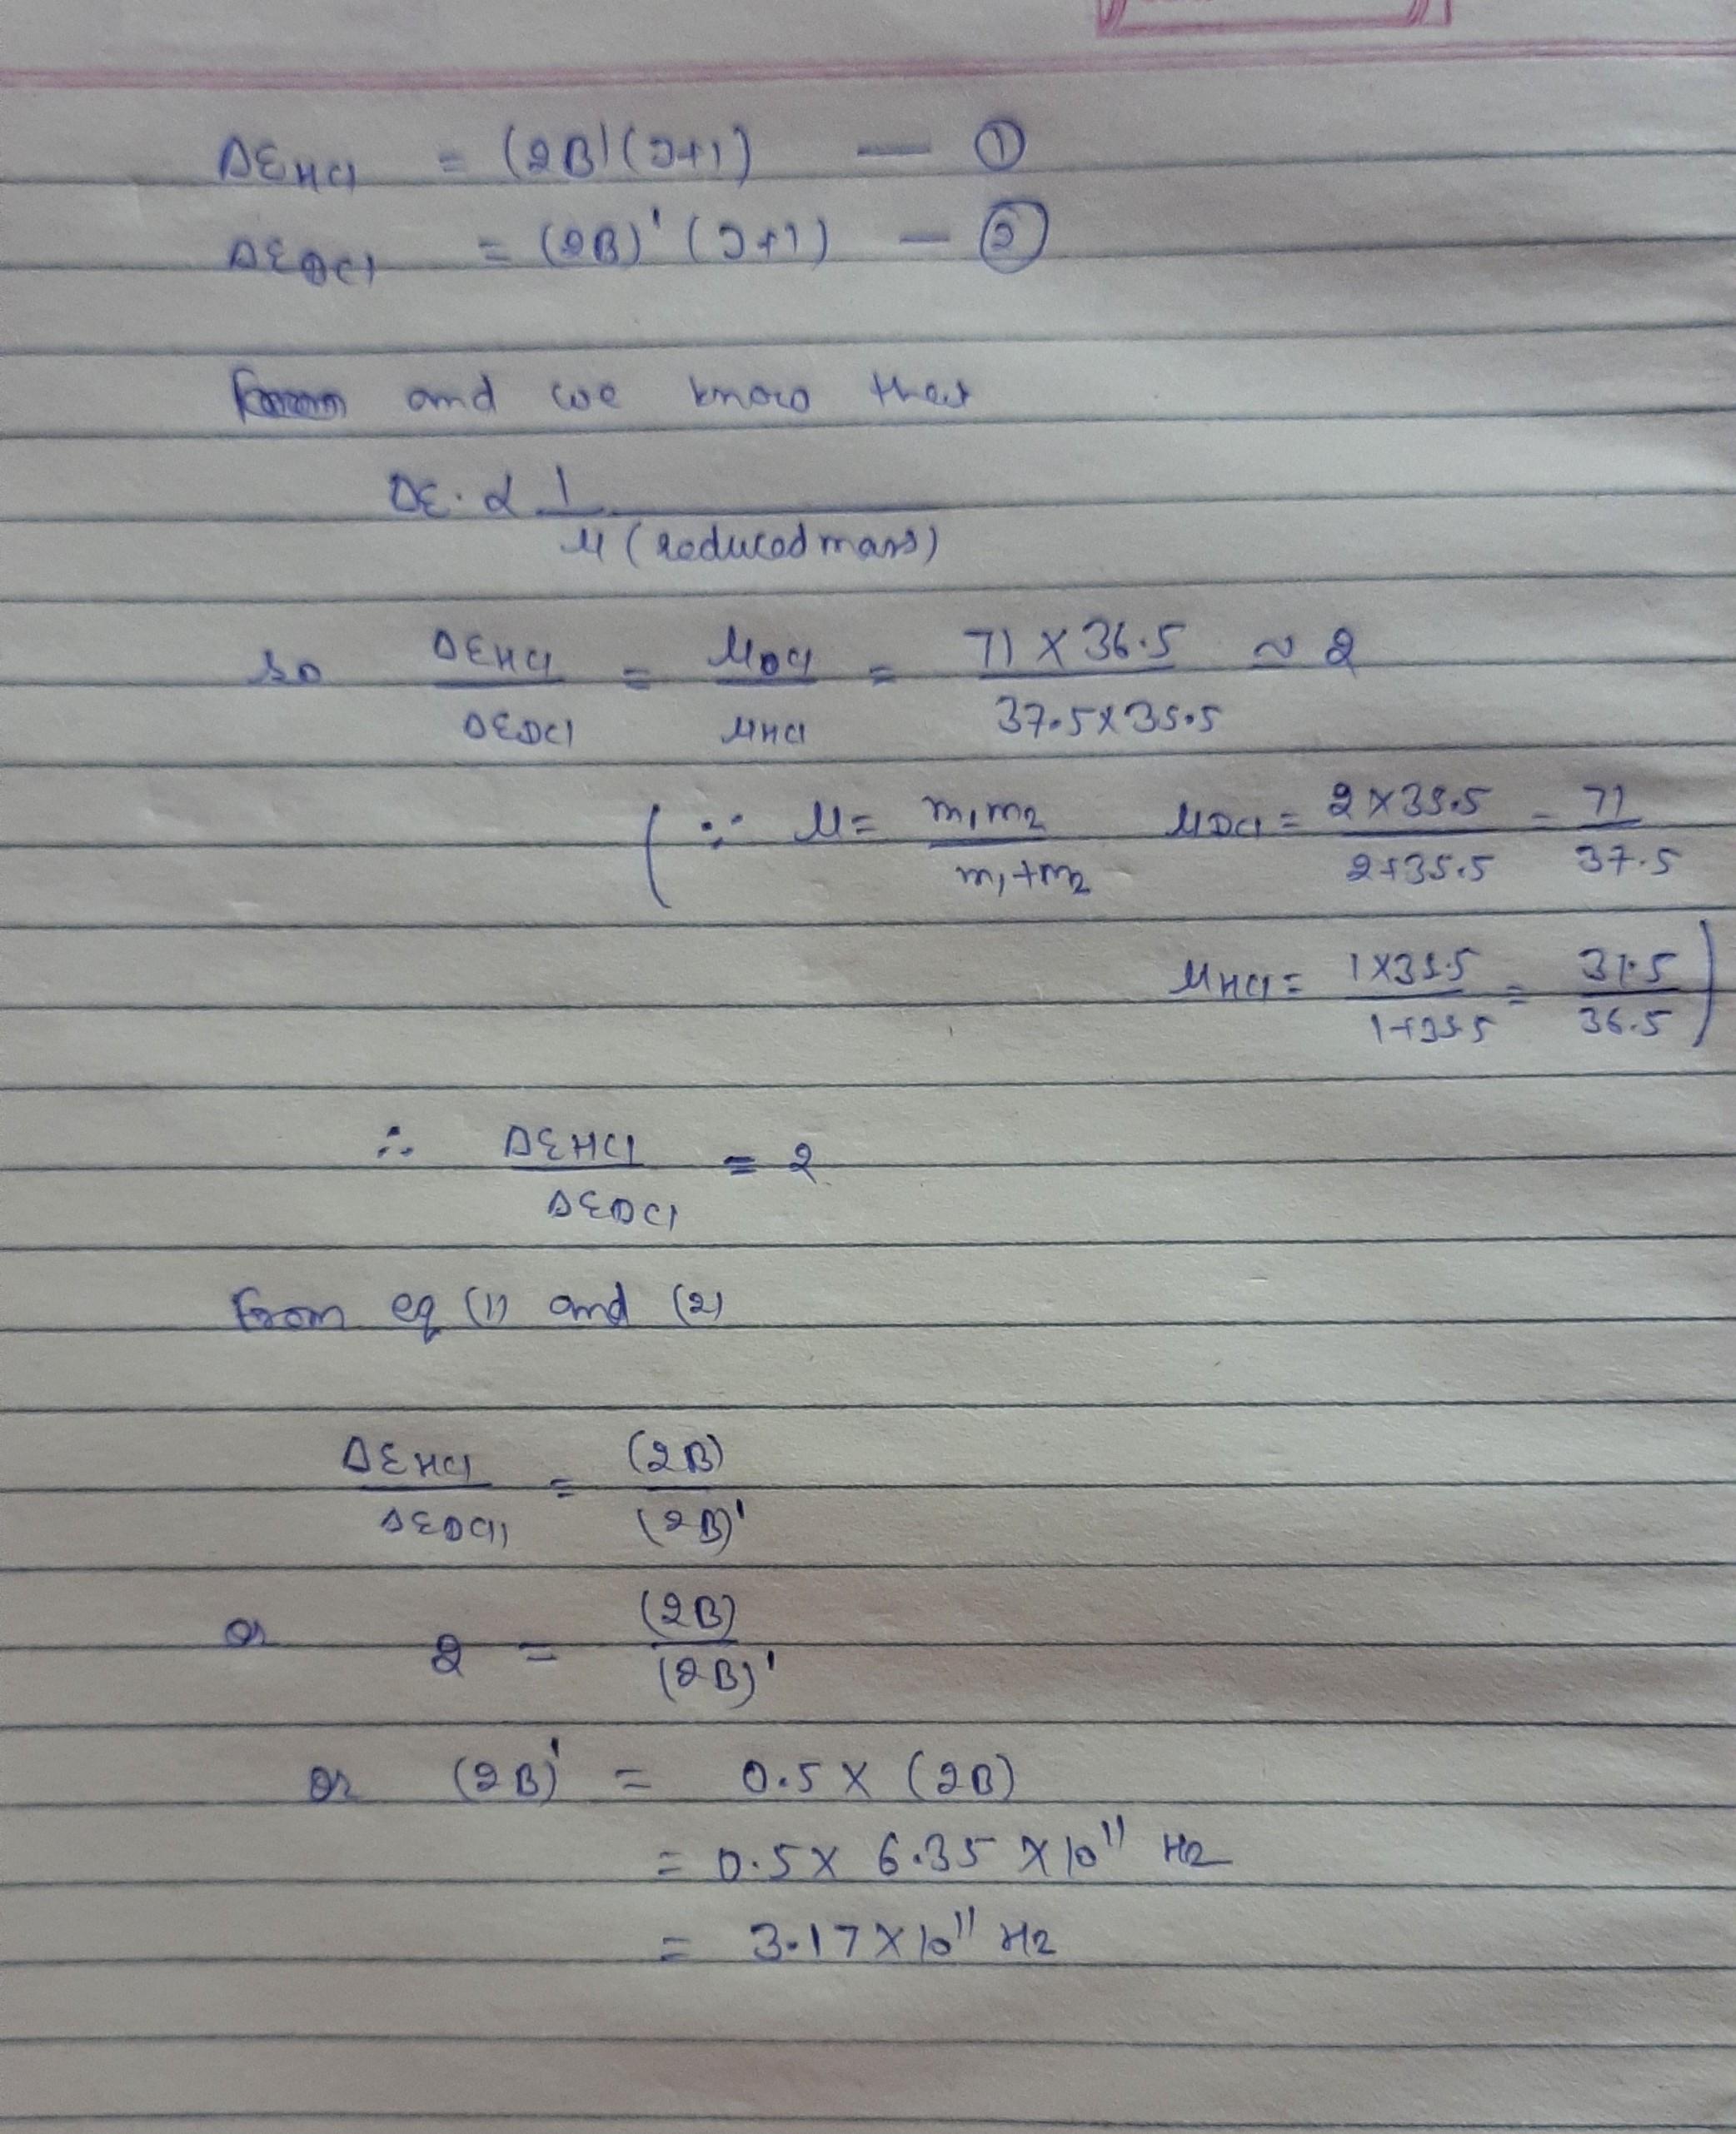 ΔE HCl = (2B)(J+1) — ①
ΔE DCl = (2B)' (J+1) — ②
and we know that
ΔE. α 1 / μ (reduced mass)
so ΔE HCl / ΔE DCl = μ DCl / μ HCl = 71 × 36.5 / 37.5 × 35.5 ~ 2
( ∵ μ = m1m2 / m1+m2 μ DCl = 2×35.5 / 2+35.5 = 71 / 37.5
μ HCl = 1×35.5 / 1+35.5 = 35.5 / 36.5 )
∴ ΔE HCl / ΔE DCl = 2
From eq (1) and (2)
ΔE HCl / ΔE DCl = (2B) / (2B)'
or 2 = (2B) / (2B)'
or (2B)' = 0.5 × (2B)
= 0.5 × 6.35 × 10^11 Hz
= 3.17 × 10^11 Hz